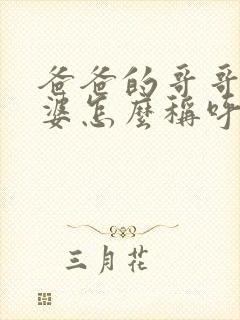 爸爸的哥哥
婆怎麼稱呼
三月花